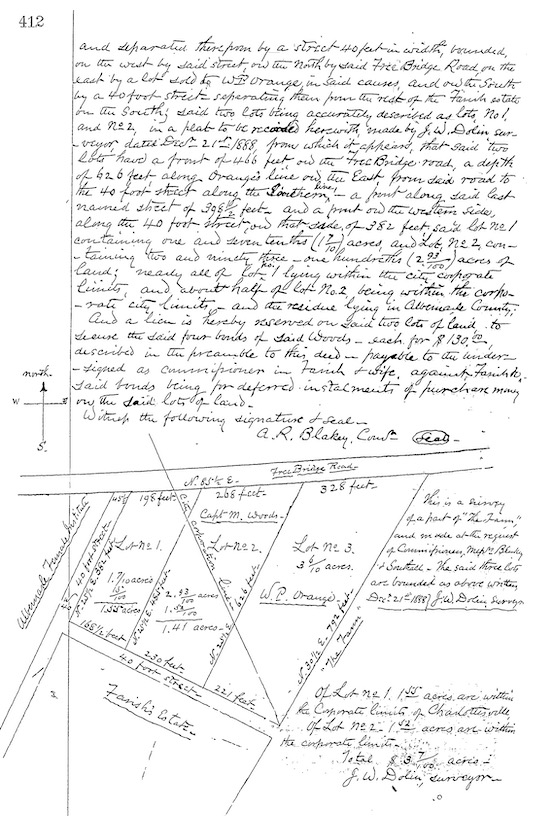 412
and separated therefrom by a street 40 feet in width, bounded,
on the west by said street, on the North by said Free Bridge Road, on the
east by a lot sold to W.P. Orange, in said causes, and on the South
by a 40 foot street separating them from the rest of the Farish estate
on the South; said two lots being accurately described as lots, No 1,
and No 2, in a plat to be recorded herewith, made by J.W. Dolin sur-
-veyor dated Decr. 21st 1888, from which it appears, that said two
lots have a front of 466 feet on the Free Bridge road, a depth
of 626 feet along Orange's line on the East from said road to
the 40 foot street along the Southern line, - a front along said last
named street of feet - and a front on the western side,
along the 40 foot street, on that side, of 382 feet, said lot No 1
containing one and seven tenths (1 7/10) acres, and Lot, No 2, con-
-taining two and ninety three - one hundredths (2 93/100) acres of
land; nearly all of Lot No. 1 lying within the city corporate
limits, and about half of lot No. 2, being within the corpo-
-rate city limits, - and the residue lying in Albemarle County.
And a lien is hereby reserved on said two lots of land to
secure the said four bonds of said Woods - each for $130,
described in the preamble to this deed - payable to the under-
-signed as commissioner in Farish & wife, against Farish
said bonds being for deferred instalments of purchase money
on the said lots of land.-
Witness the following signature & seal -
A. R. Blakey, Comr. Seal
north
W E
S.
Free Bridge Road -
N. 85½ E.
45° 198 feet - 268 feet - 328 feet -
Albemarle Female Institute
40 foot street -
N. 25½ E. 382 feet
Lot No 1.
1.7/10 acres
15/100
1.55 acres
N. 25½ E. 495 feet
City corporation line
Capt. M. Woods -
Lot No 2.
2.93/100 acres
1.52/100
1.41 acres -
N. 25½ E. 626 feet
Lot No. 3.
3 6/10 acres
W. P. Orange -
N. 30½ E. 792 feet -
"The Farm"
This is a survey
of a part of "The Farm,"
and made at the request
of Commissioners, Messrs Blakey
& Southall - The said three lots
are bounded as above written
Decr. 21st 1888 J.W. Dolin, surveyor
168½ feet
230 feet
40 foot street -
221 feet
Farish's Estate -
Of Lot No 1. 1 55 acres are within
the Corporate limits of Charlottesville
Of Lot No 2 - 1 52 acres are within
the corporate limits -
Total 3 7/100 acres -
J. W. Dolin, surveyor -